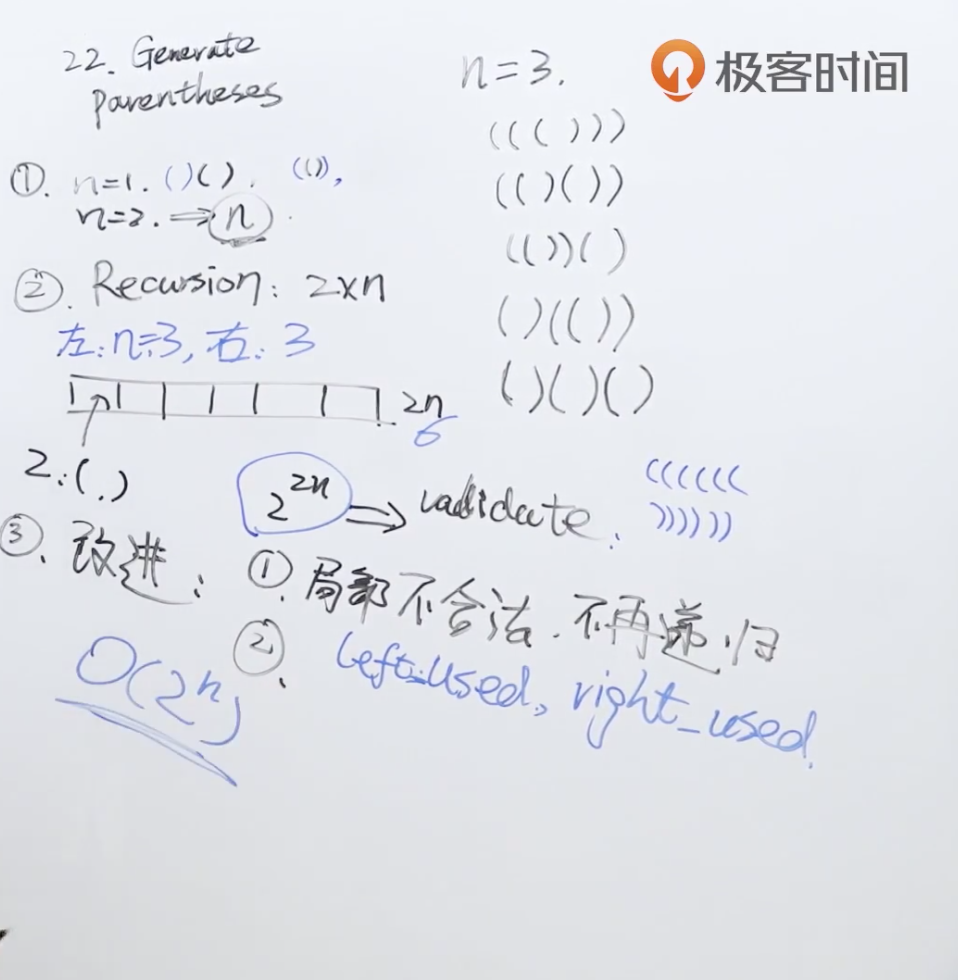 22. Generate
Parentheses
极客时间
n=3.
((()))
(()())
(())()
()(())
()()()
①. n=1. ()(). (()),
n=2. ⇒ n.
②. Recursion: 2×n
左: n=3, 右: 3
2n
6
2: ( . )
2^2n ⇒ validate:
((((((
))))))
③、改进: ①. 局部不合法. 不再递归
②、 left_used, right_used.
O(2^n)